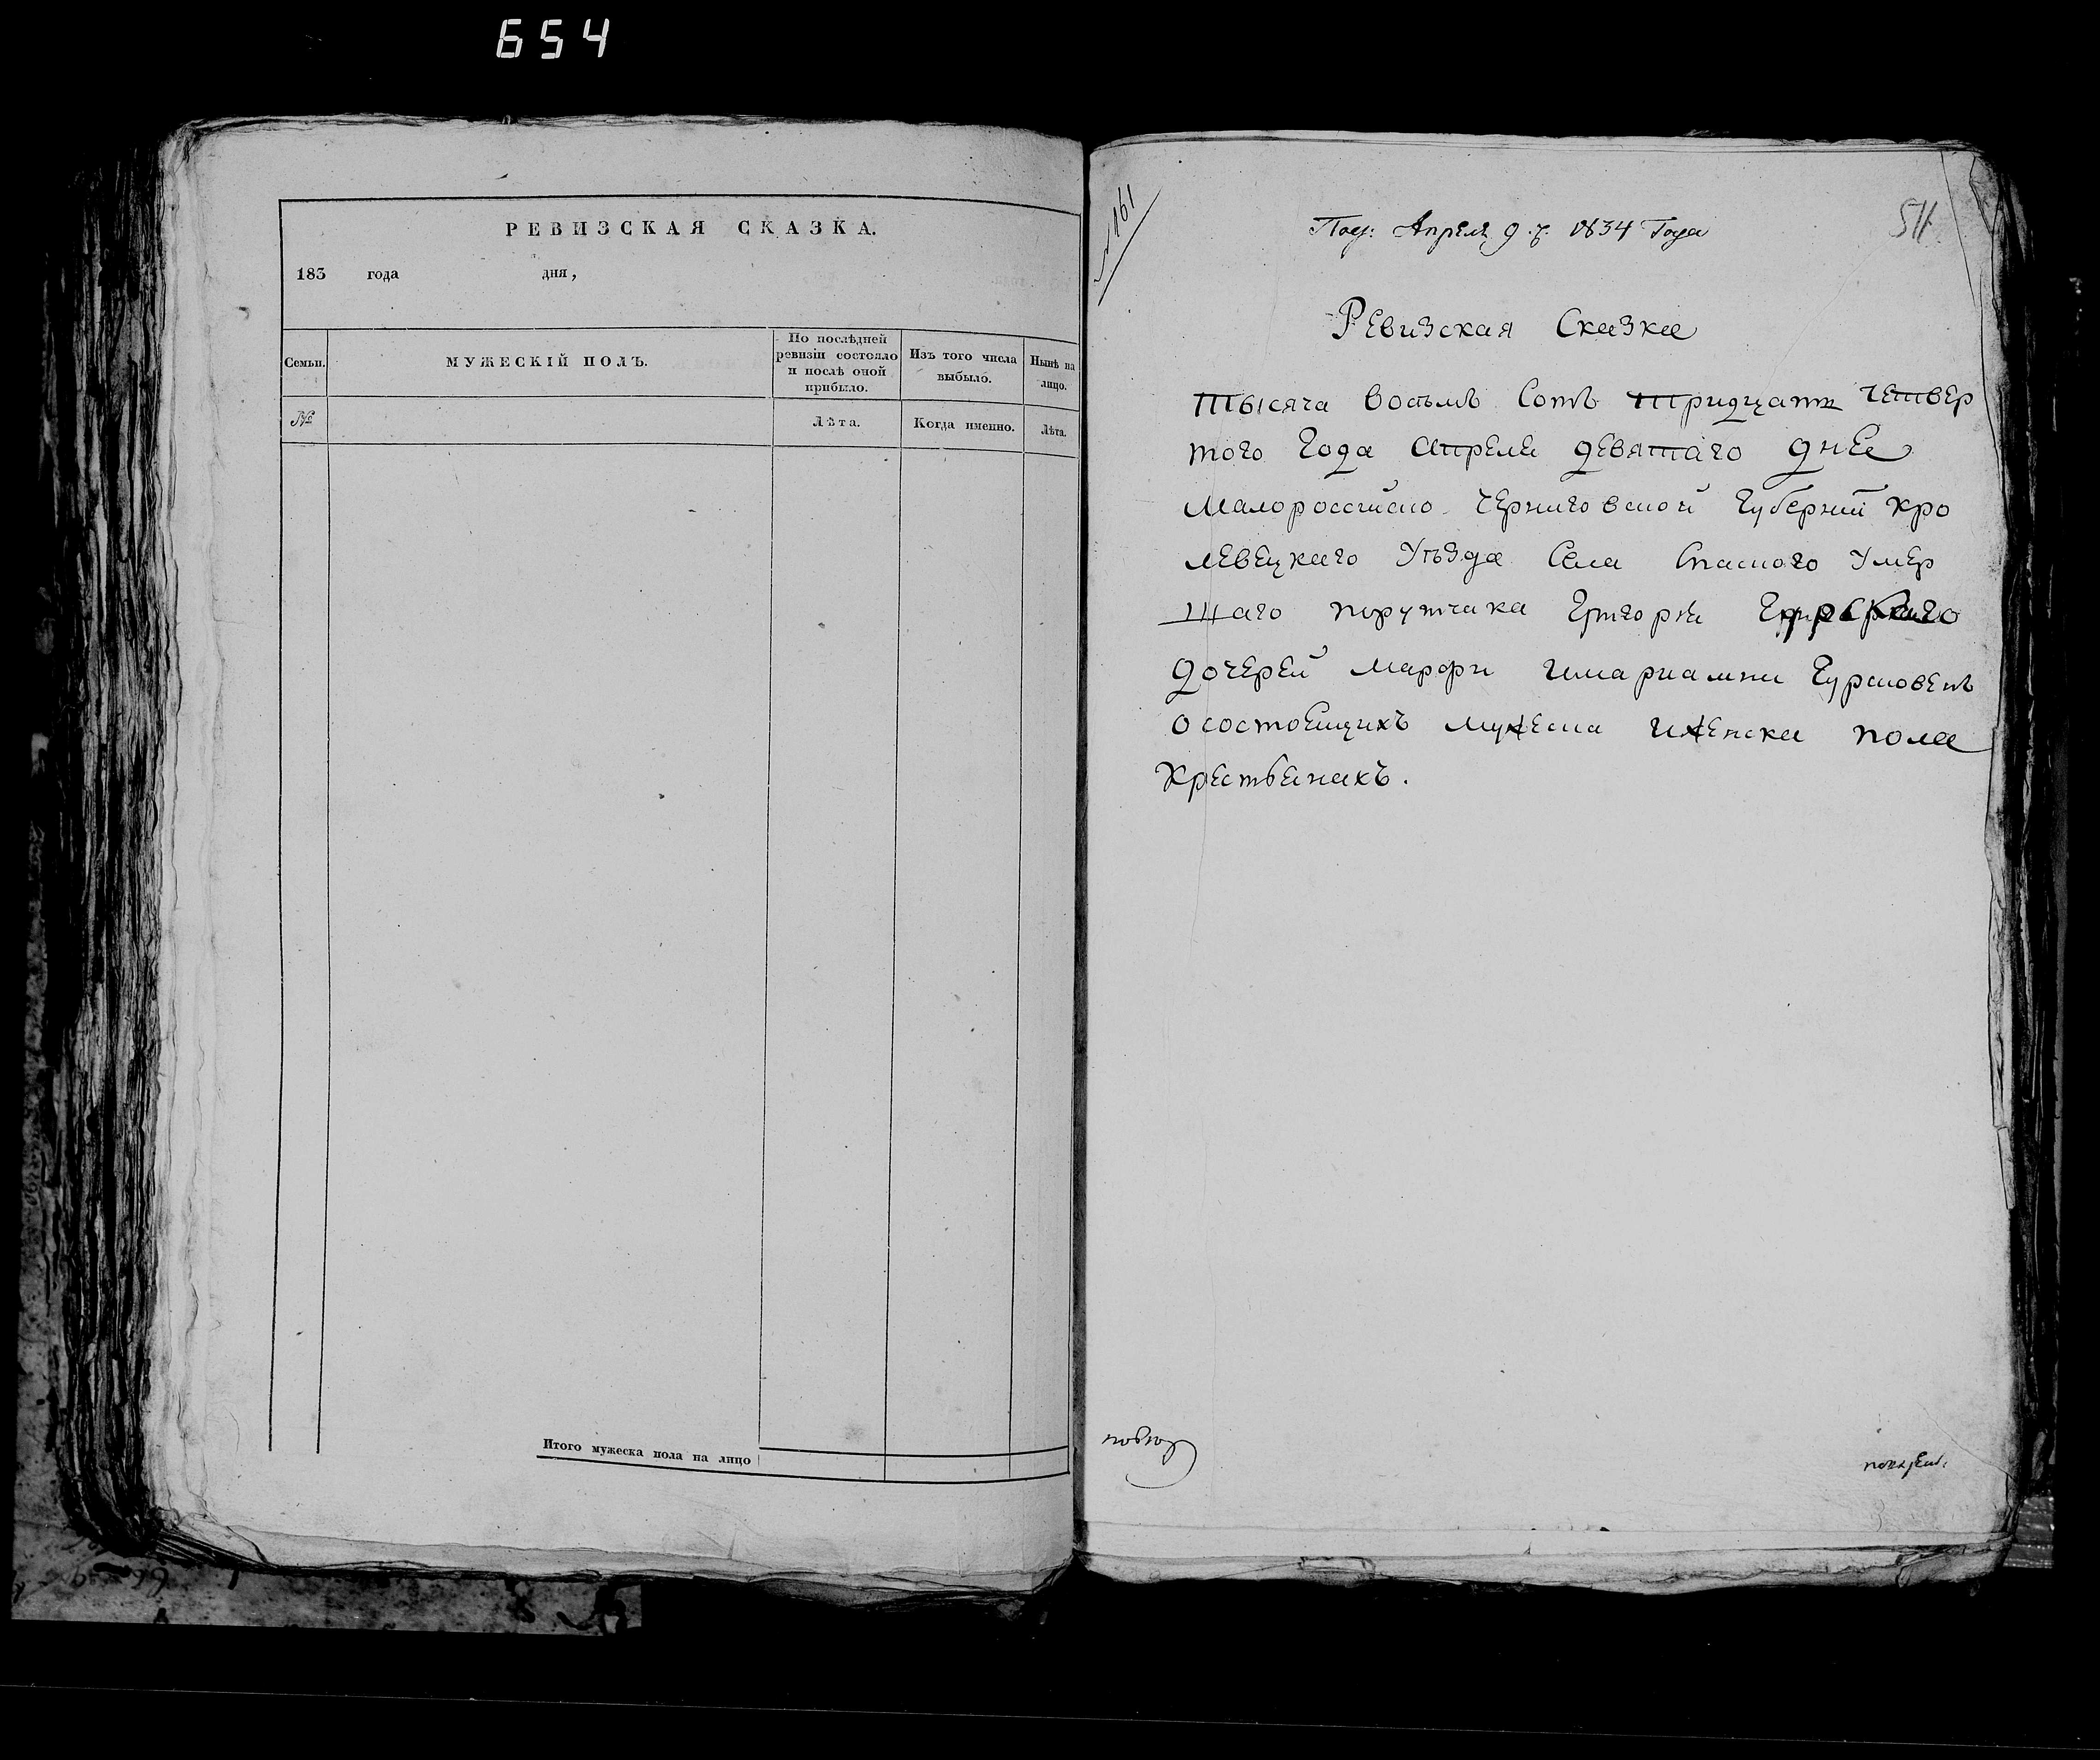 654
РЕВИЗСКАЯ СКАЗКА.
183 года дня,
Семьи.
МУЖЕСКІЙ ПОЛЪ.
По послѣдней
ревизіи состояло
и послѣ оной
прибыло.
Изъ того числа
выбыло.
Нынѣ на
лицо.
№
Лѣта.
Когда именно.
Лѣта.
Итого мужеска пола на лицо
№ 161
Пол: Апреля 9. ч. 1834 Года
511
Ревизская Сказка
тысяча восемъ Сотъ тридцать четвер
того Года апреля девятаго дне
малоросийско черниговской Губерний кро
левецкаго Уѣзда Села Спаского Умер
шаго порутчика Григория
дочерей марфи имариамни Гурсковенъ
осостоящихъ мужеска иженска пола
крестьянахъ.